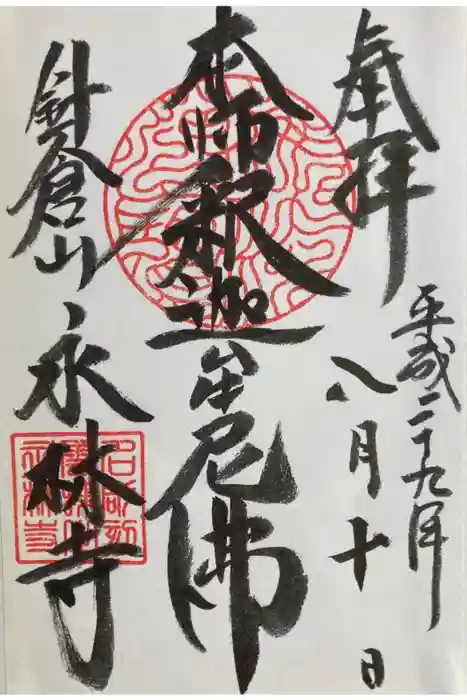 奉拝
平成二十九年
八月十日
本師釈迦牟尼佛
針倉山
永林寺